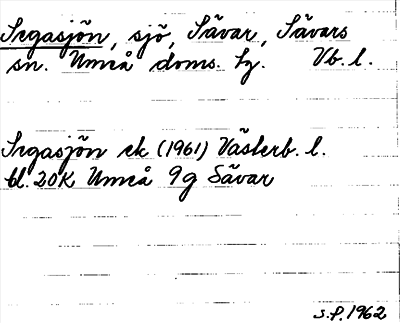 Segasjön, sjö, Sävar, Sävars
sn. Umeå doms. tg. Vb. l.
Segasjön ek (1961) Västerb. l.
bl. 20K Umeå 9g Sävar
S.P. 1962